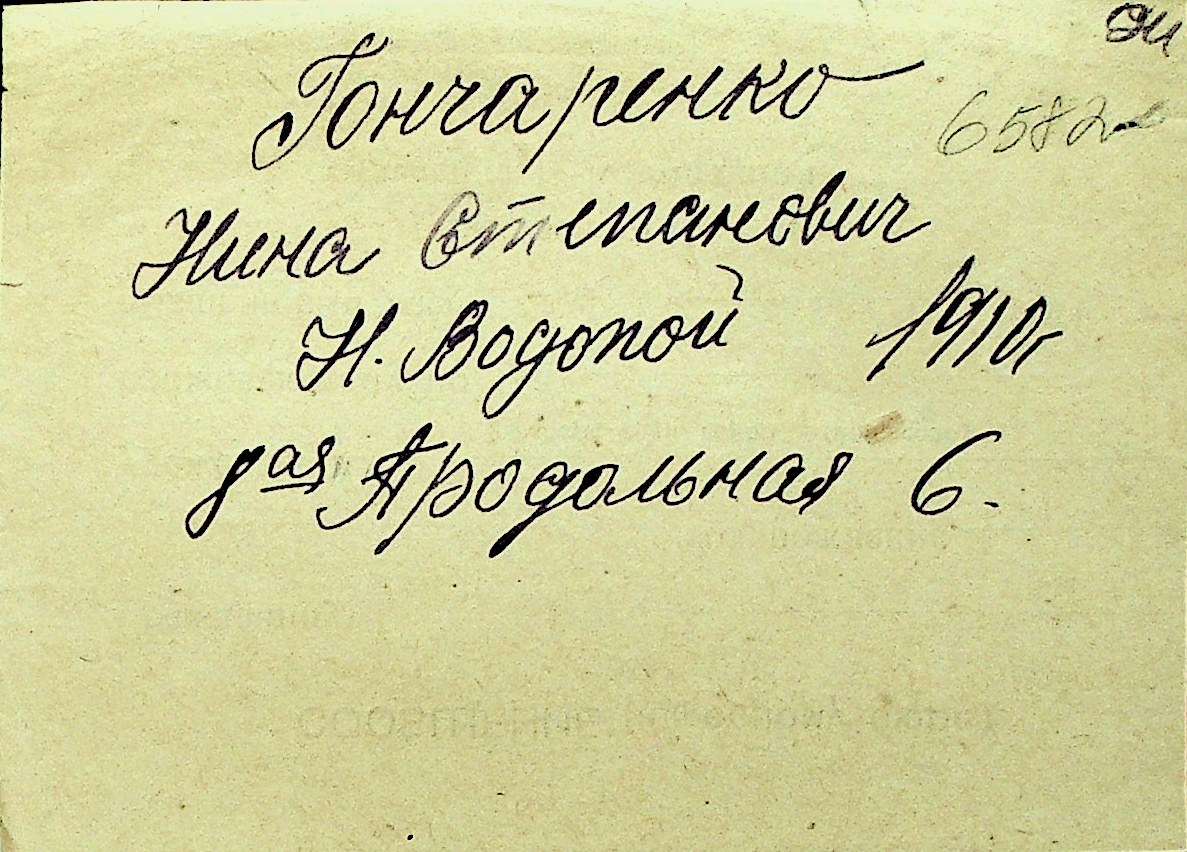 Гончаренко
6582
Нина Степанович
Н. Водопой 1910г
8ая Продольная 6.